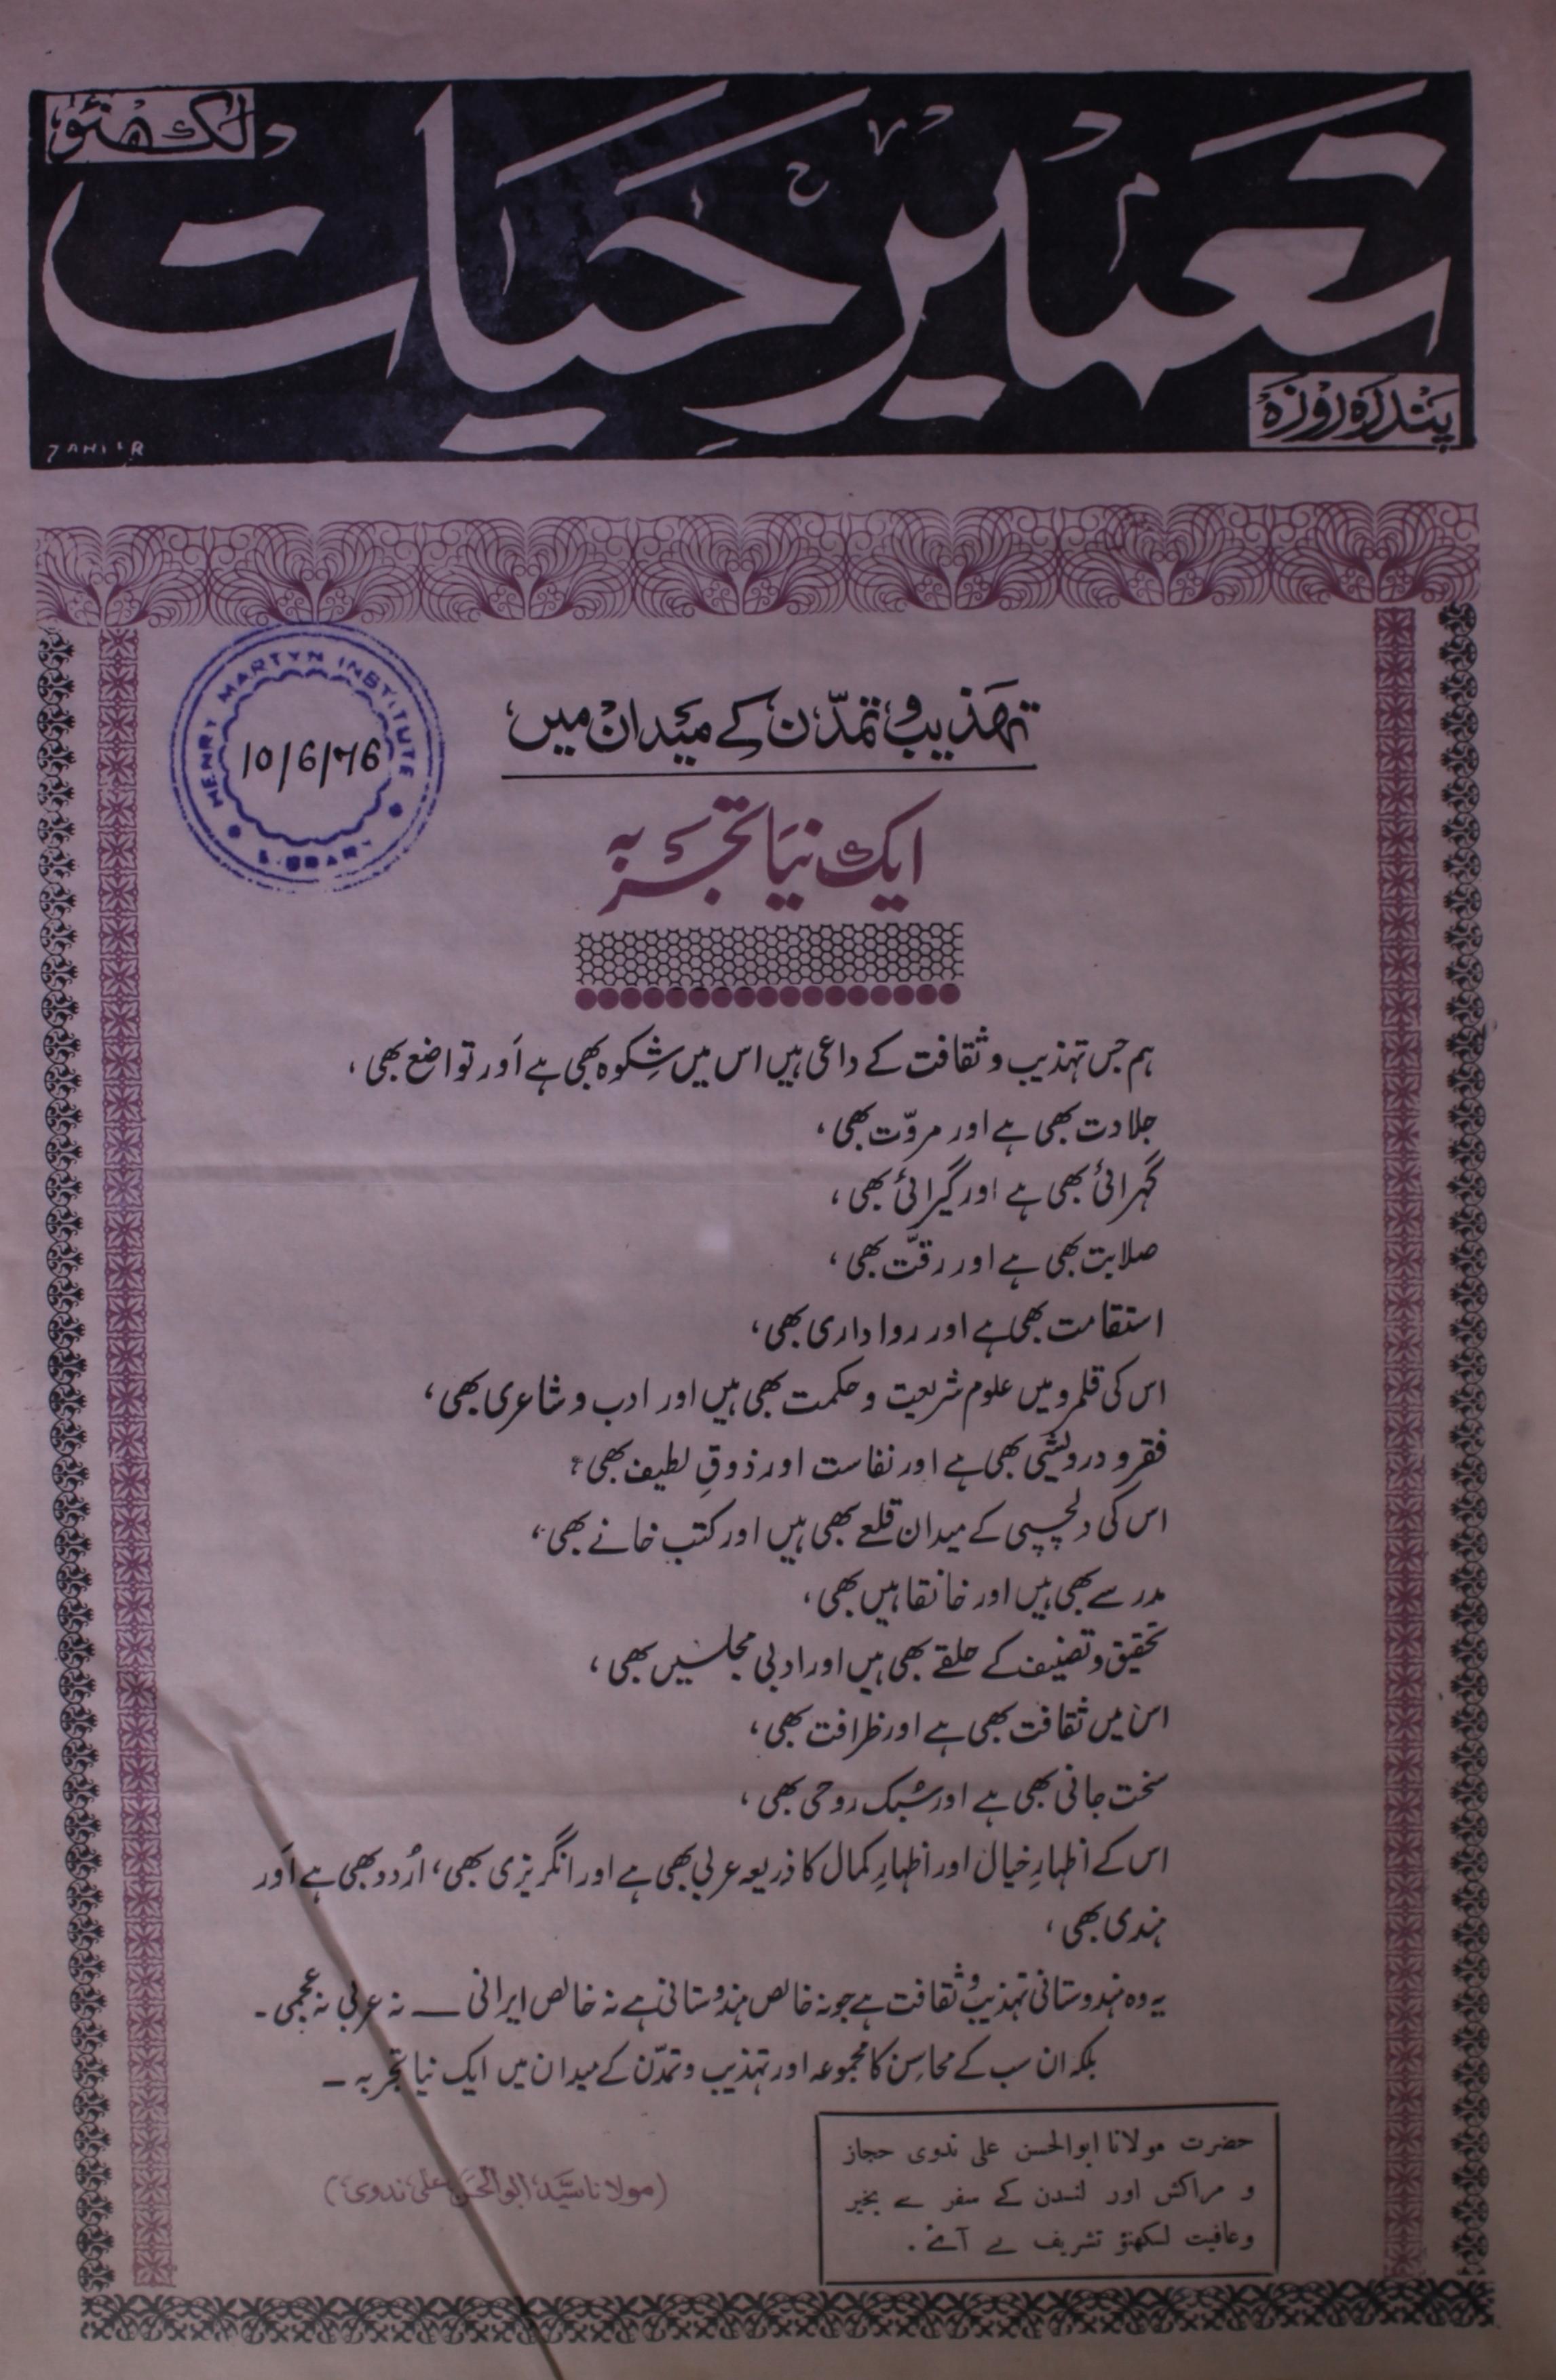 لکھنؤ
تعمیر حیات
پندرہ روزہ
ZAHIR
HENRY MARTYN INSTITUTE
10/6/76
LIBRARY
تہذیب و تمدّن کے میدان میں،
ایک نیا تجربہ
ہم جس تہذیب و ثقافت کے داعی ہیں اس میں شکوہ بھی ہے اور تواضع بھی،
جلادت بھی ہے اور مروّت بھی،
گہرائی بھی ہے اور گیرائی بھی،
صلابت بھی ہے اور رقّت بھی،
استقامت بھی ہے اور رواداری بھی،
اس کی قلمرو میں علوم شریعت و حکمت بھی ہیں اور ادب و شاعری بھی،
فقر و درویشی بھی ہے اور نفاست اور ذوقِ لطیف بھی،
اس کی دلچسپی کے میدان قلعے بھی ہیں اور کتب خانے بھی،
مدرسے بھی ہیں اور خانقاہیں بھی،
تحقیق و تصنیف کے حلقے بھی ہیں اور ادبی مجلسیں بھی،
اس میں ثقافت بھی ہے اور ظرافت بھی،
سخت جانی بھی ہے اور سُبک روحی بھی،
اس کے اظہارِ خیال اور اظہارِ کمال کا ذریعہ عربی بھی ہے اور انگریزی بھی، اُردو بھی ہے اور
ہندی بھی،
یہ وہ ہندوستانی تہذیب و ثقافت ہے جو نہ خالص ہندوستانی ہے نہ خالص ایرانی ــ نہ عربی نہ عجمی ۔
بلکہ ان سب کے محاسن کا مجموعہ اور تہذیب و تمدّن کے میدان میں ایک نیا تجربہ ۔
(مولانا سیّد ابوالحسن علی ندوی)
حضرت مولانا ابوالحسن علی ندوی حجاز
و مراکش اور لندن کے سفر سے بخیر
و عافیت لکھنؤ تشریف لے آئے .